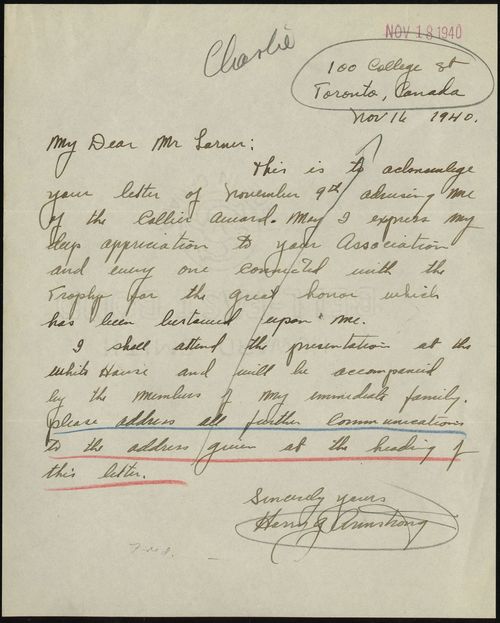 NOV 18 1940
Charlie
100 College St
Toronto, Canada
Nov 16 1940.
My Dear Mr Larner:
This is to acknowlege
your letter of November 9th advising me
of the Collier Award. May I express my
deep appriciation to your Association
and every one connected with the
Trophy for the great honor which
has been bestowed upon me.
I shall attend the presentation at the
White House and will be accompanied
by the members of my immediate family.
please address all further communications
to the address given at the heading of
this letter.
Sincerely yours
Harry G Armstrong